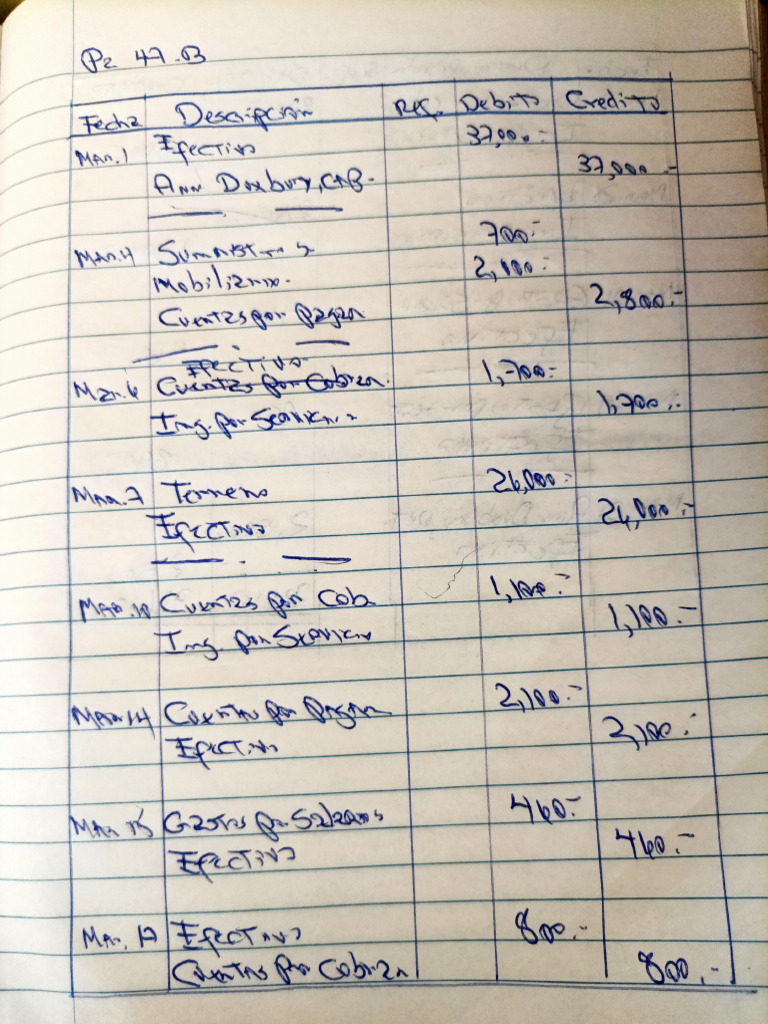 P2 47-B
Fecha Descripción Ref. Debito Credito
Mar. 1 Efectivo 37,000.-
Ann Duxbury, Cap. 37,000.-
Mar. 4 Suministros 700.-
Mobiliario. 2,100.-
Cuentas por pagar 2,800.-
Efectivo
Mar. 6 Cuentas por Cobrar. 1,700.-
Ing. por Servicios 1,700.-
Mar. 7 Terreno 26,000.-
Efectivo 26,000.-
Mar. 10 Cuentas por Cob 1,100.-
Ing. por Servicios 1,100.-
Mar. 14 Cuentas por Pagar 2,100.-
Efectivo 2,100.-
Mar. 15 Gastos por Salarios 460.-
Efectivo 460.-
Mar. 17 Efectivo 800.-
Cuentas por Cobrar 800.-